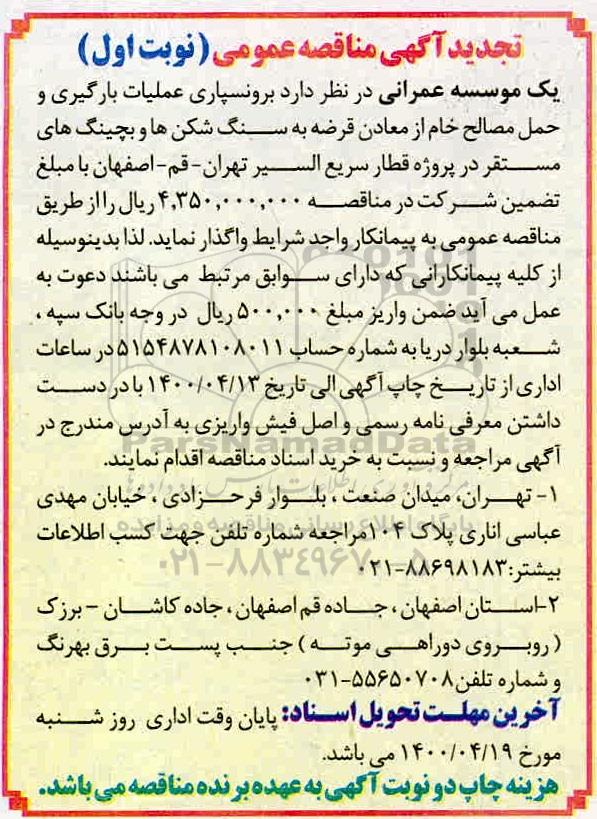 تجدید آگهی مناقصه عمومی (نوبت اول)
یک موسسه عمرانی در نظر دارد برونسپاری عملیات بارگیری و
حمل مصالح خام از معادن قرضه به سنگ شکن ها و بچینگ های
مستقر در پروژه قطار سریع السیر تهران - قم - اصفهان با مبلغ
تضمین شرکت در مناقصه ۴,۳۵۰,۰۰۰,۰۰۰ ریال را از طریق
مناقصه عمومی به پیمانکار واجد شرایط واگذار نماید. لذا بدینوسیله
از کلیه پیمانکارانی که دارای سوابق مرتبط می باشند دعوت به
عمل می آید ضمن واریز مبلغ ۵۰۰,۰۰۰ ریال در وجه بانک سپه ،
شعبه بلوار دریا به شماره حساب ۵۱۵۴۸۷۸۱۰۸۰۱۱ در ساعات
اداری از تاریخ چاپ آگهی الی تاریخ ۱۴۰۰/۰۴/۱۳ با در دست
داشتن معرفی نامه رسمی و اصل فیش واریزی به آدرس مندرج در
آگهی مراجعه و نسبت به خرید اسناد مناقصه اقدام نمایند.
ParsNamadData
۱- تهران، میدان صنعت ، بلوار فرحزادی ، خیابان مهدی
پایگاه اطلاع رسانی مناقصه و مزایده
عباسی اناری پلاک ۱۰۴ مراجعه شماره تلفن جهت کسب اطلاعات
بیشتر: ۸۸۶۹۸۱۸۳-۰۲۱
۰۲۱-۸۸۳۴۹۶۷۰-۵
۲- استان اصفهان ، جاده قم اصفهان ، جاده کاشان - برزک
( روبروی دوراهی موته ) جنب پست برق بهرنگ
و شماره تلفن ۵۵۶۵۰۷۰۸-۰۳۱
آخرین مهلت تحویل اسناد: پایان وقت اداری روز شنبه
مورخ ۱۴۰۰/۰۴/۱۹ می باشد.
هزینه چاپ دو نوبت آگهی به عهده برنده مناقصه می باشد.